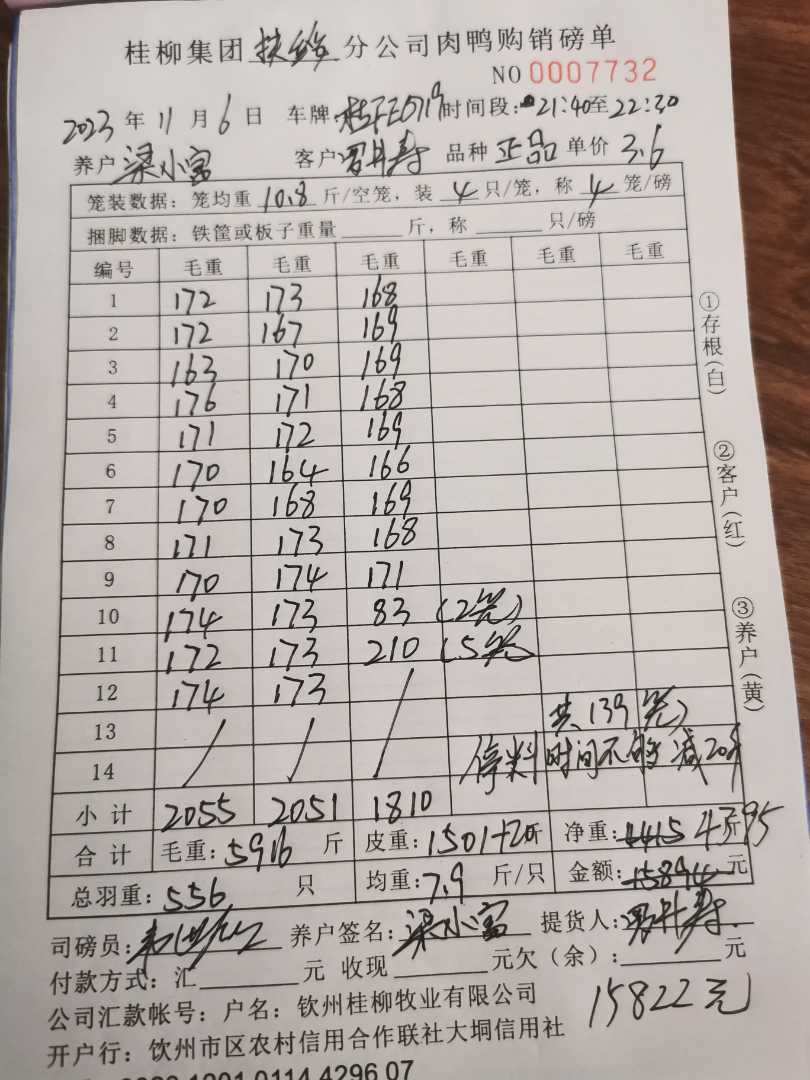 桂柳集团 分公司肉鸭购销磅单
NO 0007732
2023 年 11 月 6 日 车牌 时间段: 21:40 至 22:30
养户 梁小富 客户 罗升寿 品种 正品 单价 3.6
笼装数据: 笼均重 10.8 斤/空笼, 装 4 只/笼, 称 4 笼/磅
捆脚数据: 铁筐或板子重量 斤, 称 只/磅
编号 毛重 毛重 毛重 毛重 毛重 毛重
1 172 173 168
2 172 167 169
3 163 170 169
4 176 171 168
5 171 172 169
6 170 164 166
7 170 168 169
8 171 173 168
9 170 174 171
10 174 173 83 (2笼)
11 172 173 210 (5笼
12 174 173
13 / / / 共139笼)
14 停料时间不够减20斤
小计 2055 2051 1810
合计 毛重: 5916 斤 皮重: 1501+20斤 净重: 4415 4395 斤
总羽重: 556 只 均重: 7.9 斤/只 金额: 15894 元
司磅员: 养户签名: 梁小富 提货人: 罗升寿
付款方式: 汇 元 收现 元 欠(余): 元
15822元
公司汇款帐号: 户名: 钦州桂柳牧业有限公司
开户行: 钦州市区农村信用合作联社大垌信用社
①存根(白)
②客户(红)
③养户(黄)